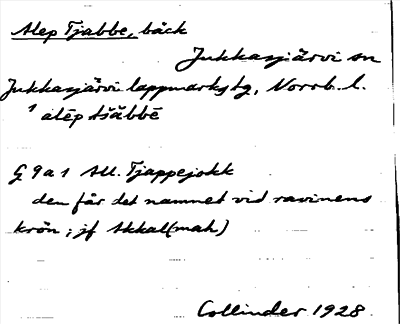 Alep Tjabbe, bäck
Jukkasjärvi sn
Jukkasjärvi lappmarkstg, Norrb. l.
¹ alēp tšăbbē
G 9 a 1 All. Tjappejokk
den får det namnet vid ravinens
krön; jf Akkal(mah)
Collinder 1928.